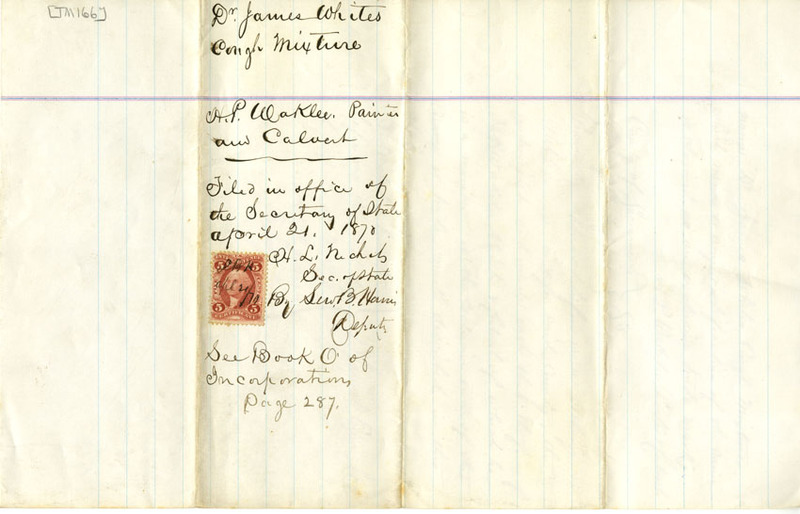 [TM166]
Dr. James Whites
Cough Mixture
H.P. Waklee. Painter
and Calvert
Filed in office of
the Secretary of State
April 21. 1870
H. L. Nichols
Sec. of State
By Lew B. Harris
Deputy
5 5
5 5
See Book O of
Incorporations
Page 287.